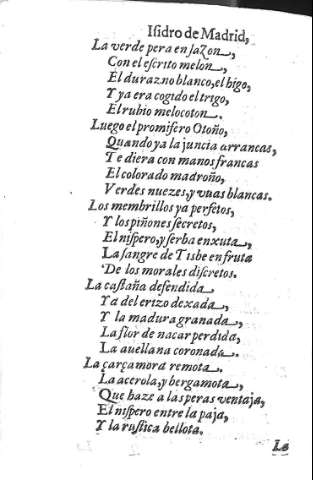 Isidro de Madrid,
La verde pera en sazon,
Con el escrito melon,
El durazno blanco, el higo,
Y ya era cogido el trigo,
El rubio melocoton.
Luego el promifero Otoño,
Quando ya la juncia arrancas,
Te diera con manos francas
El colorado madroño,
Verdes nuezes, y vuas blancas.
Los membrillos ya perfetos,
Y los piñones secretos,
El nispero, y serba enxuta,
La sangre de Tisbe en fruta
De los morales discretos.
La castaña defendida
Ya del erizo dexada,
Y la madura granada,
La flor de nacar perdida,
La auellana coronada.
La çarçamora remota.
La acerola, y bergamota,
Que haze a las peras ventaja,
El nispero entre la paja,
Y la rustica bellota.
La